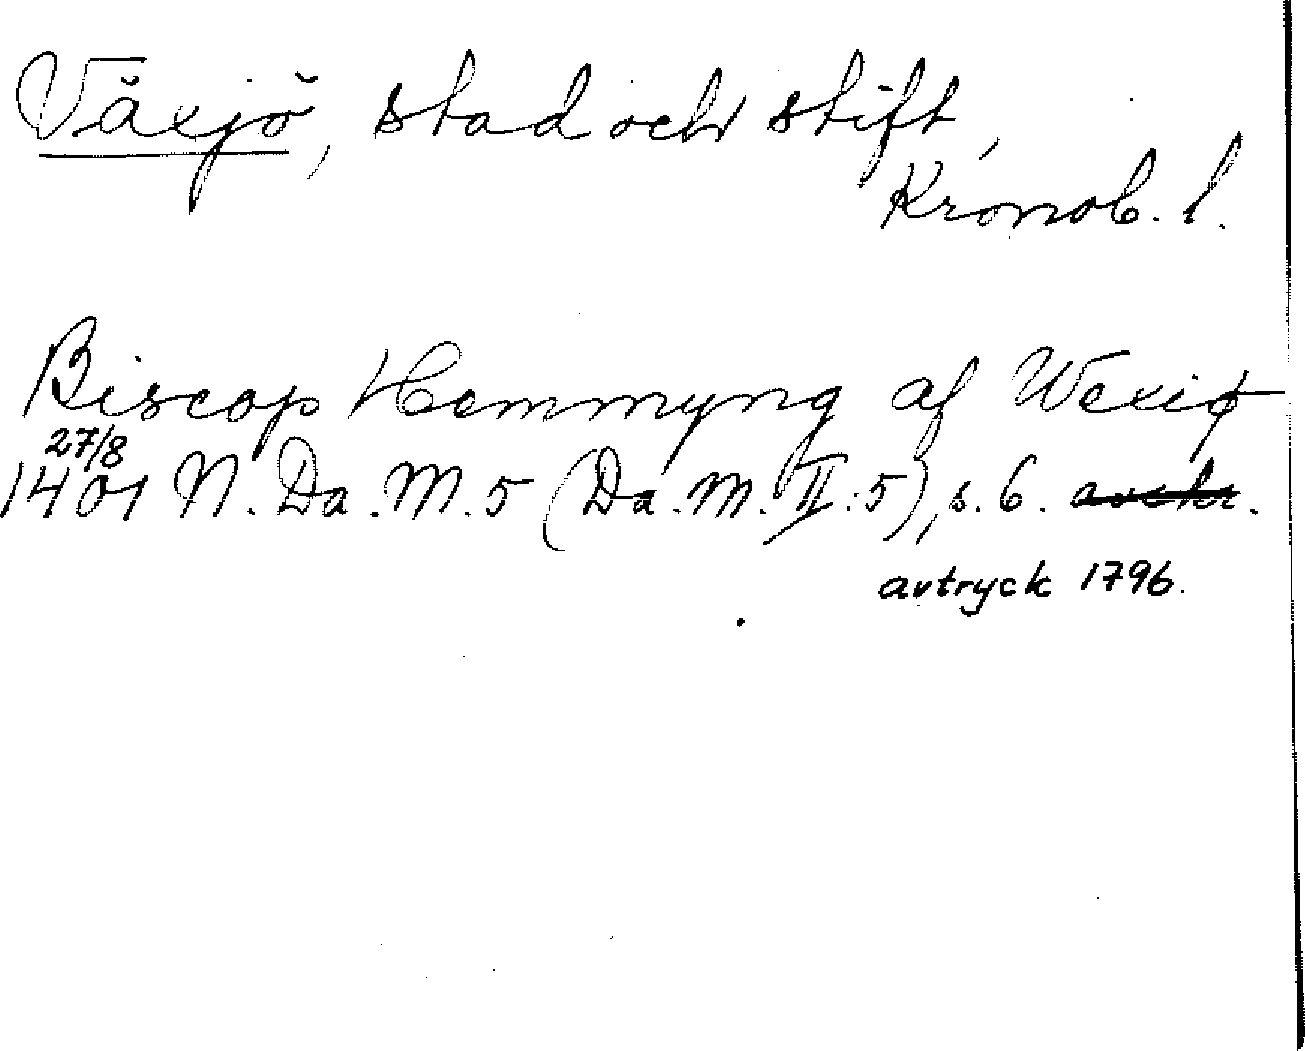 Växjö, stad och stift,
Kronob. l.
Biscop Hemmyng af Wexiø
27/8
1401 N. Da. M. 5 (Da. M. II: 5), s. 6. avskr.
avtryck 1796.